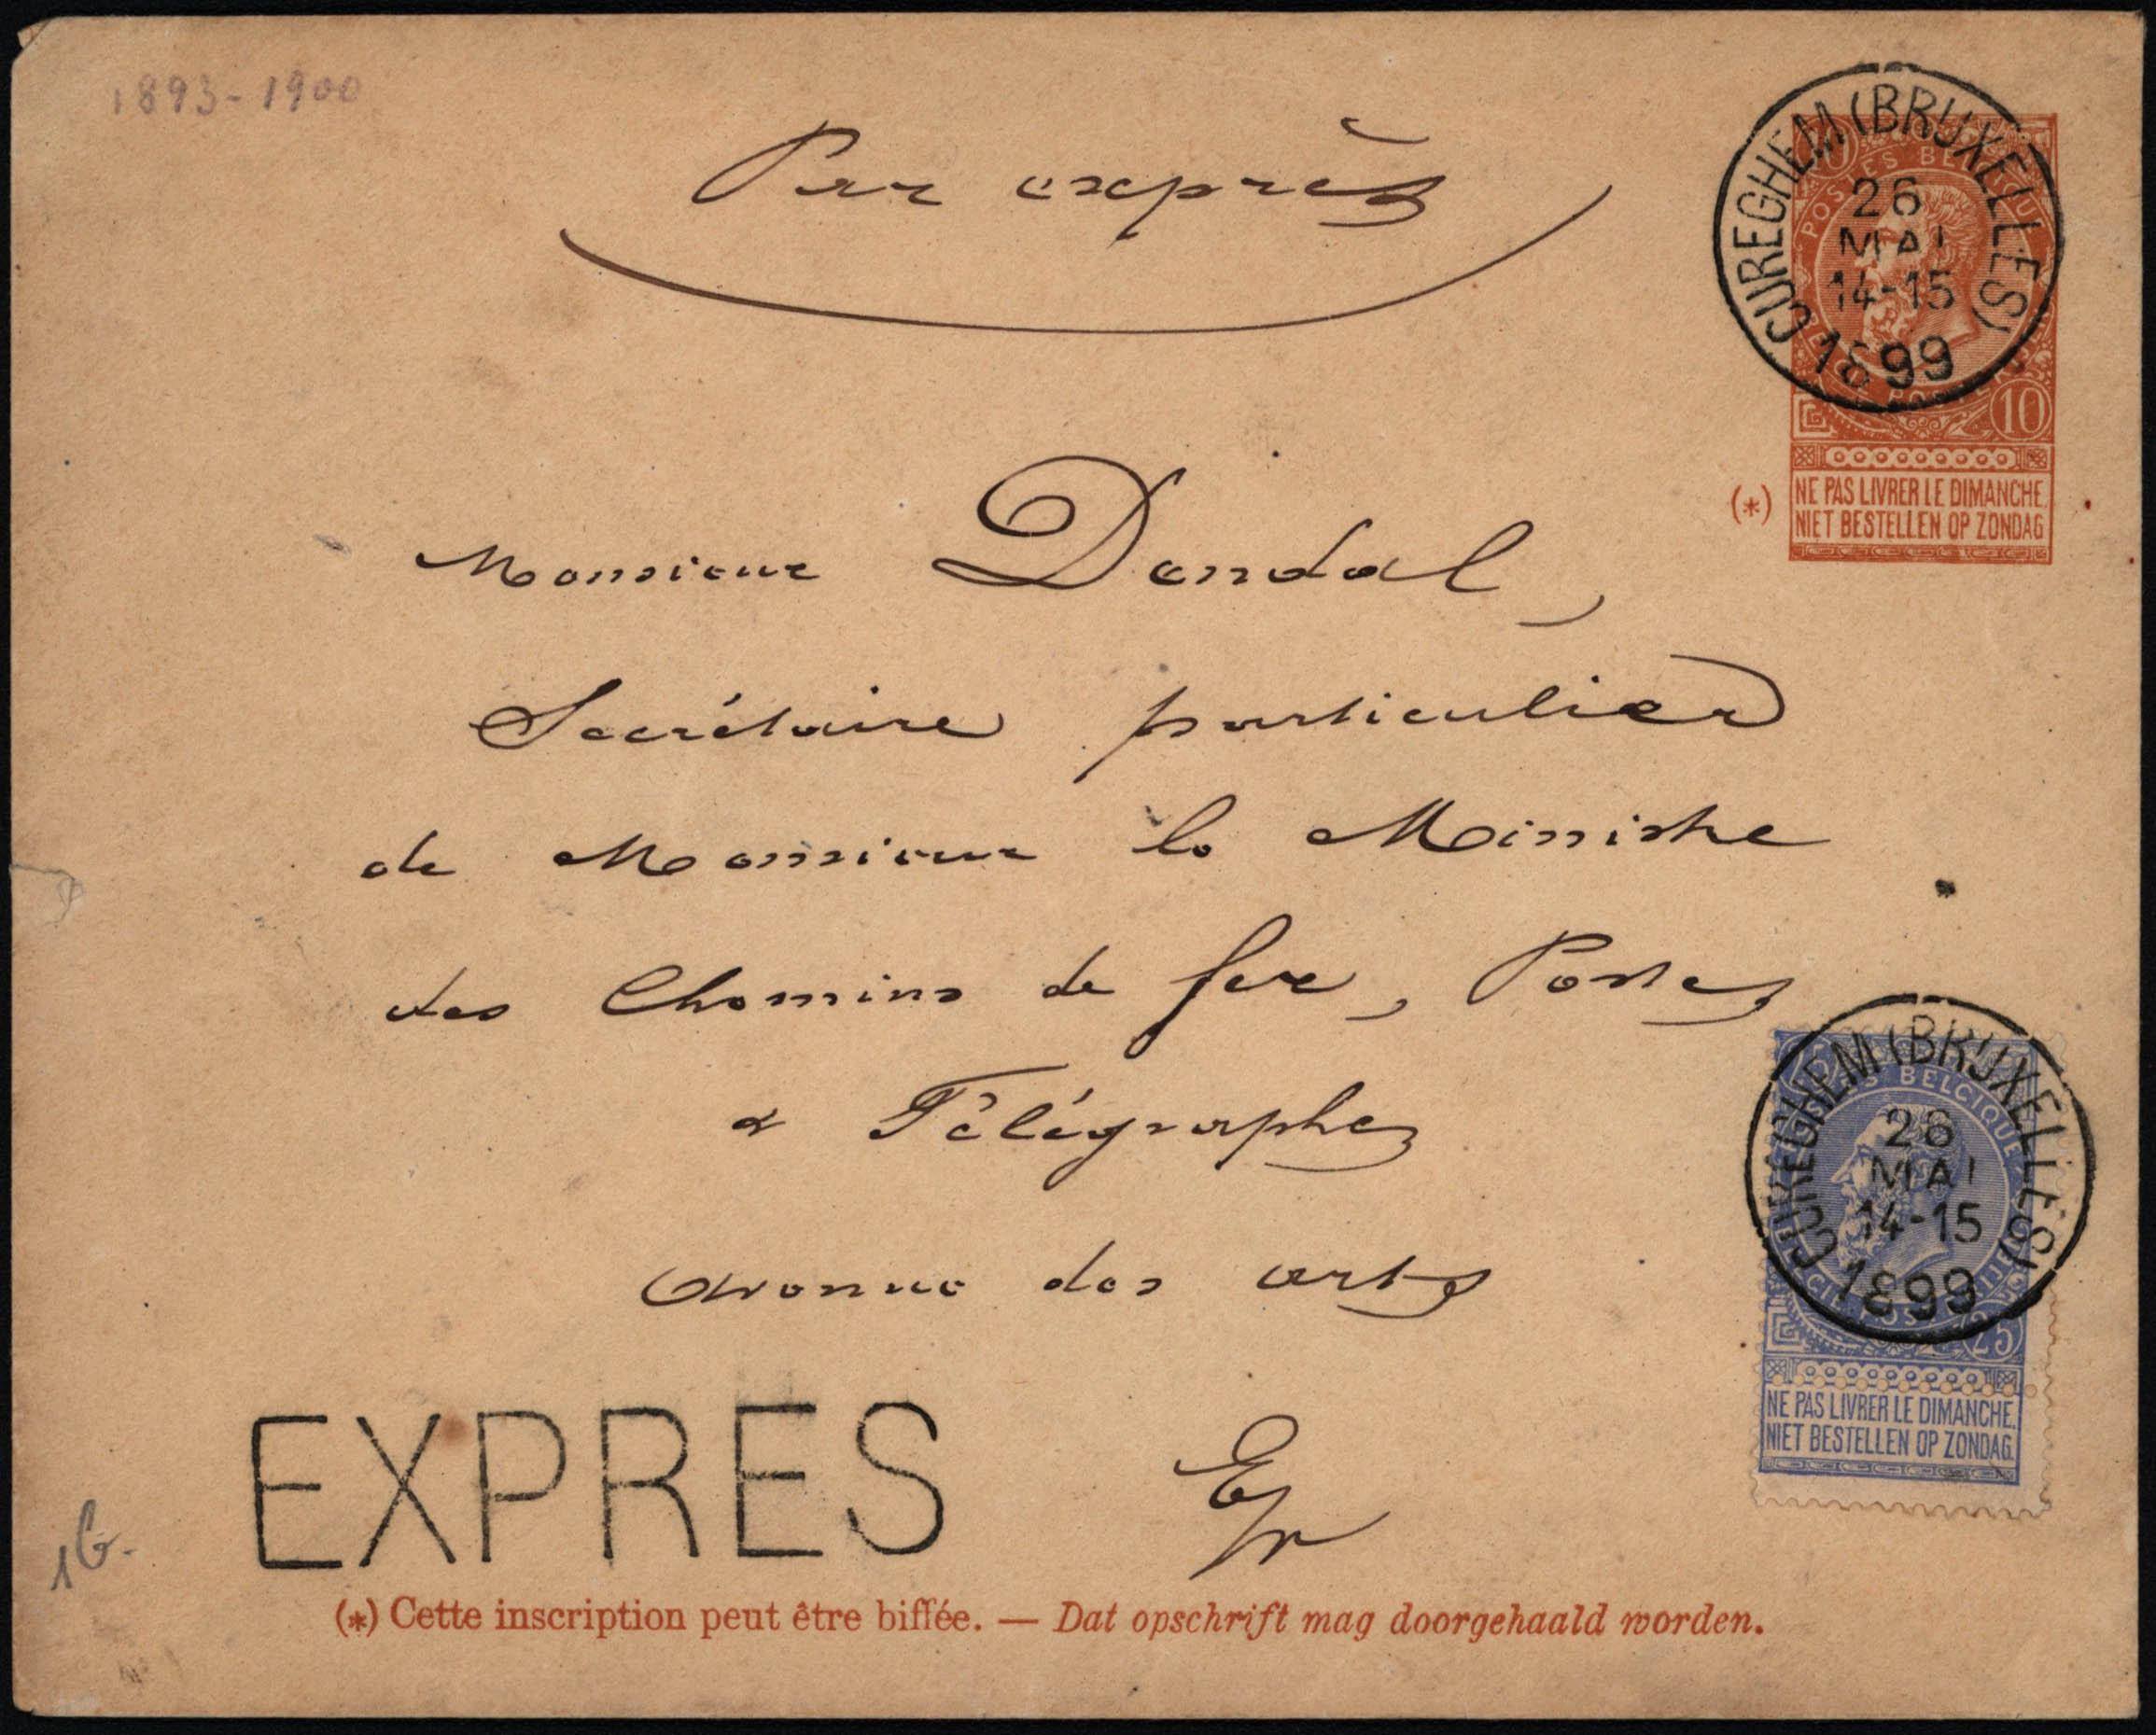 1893-1900
Par exprès
CUREGHEM (BRUXELLES)
26
MAI
14-15
1899
10
(*)
NE PAS LIVRER LE DIMANCHE
NIET BESTELLEN OP ZONDAG
Monsieur Dendal,
Secrétaire particulier
de Monsieur le Ministre
des Chemins de fer, Postes
& Télégraphes
avenue des arts
CUREGHEM (BRUXELLES)
26
MAI
14-15
1899
BELGIQUE
25
NE PAS LIVRER LE DIMANCHE.
NIET BESTELLEN OP ZONDAG.
EXPRES
(*) Cette inscription peut être biffée. — Dat opschrift mag doorgehaald worden.